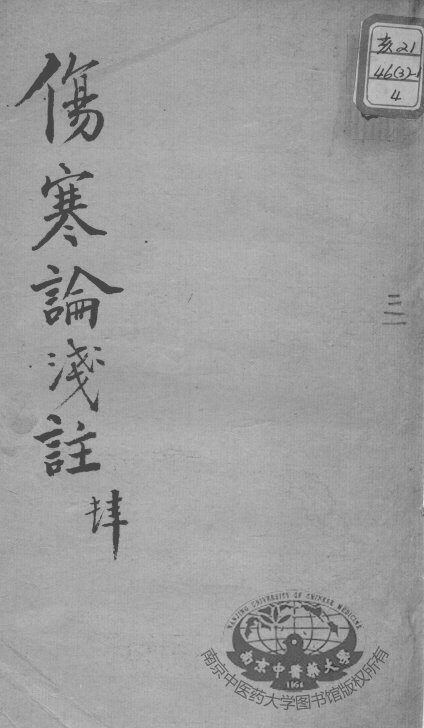 傷寒論淺註
肆
亥21
46(3)-1
4
三一
NANJING UNIVERSITY OF CHINESE MEDICINE
南京中醫藥大學
1954
南京中医药大学图书馆版权所有